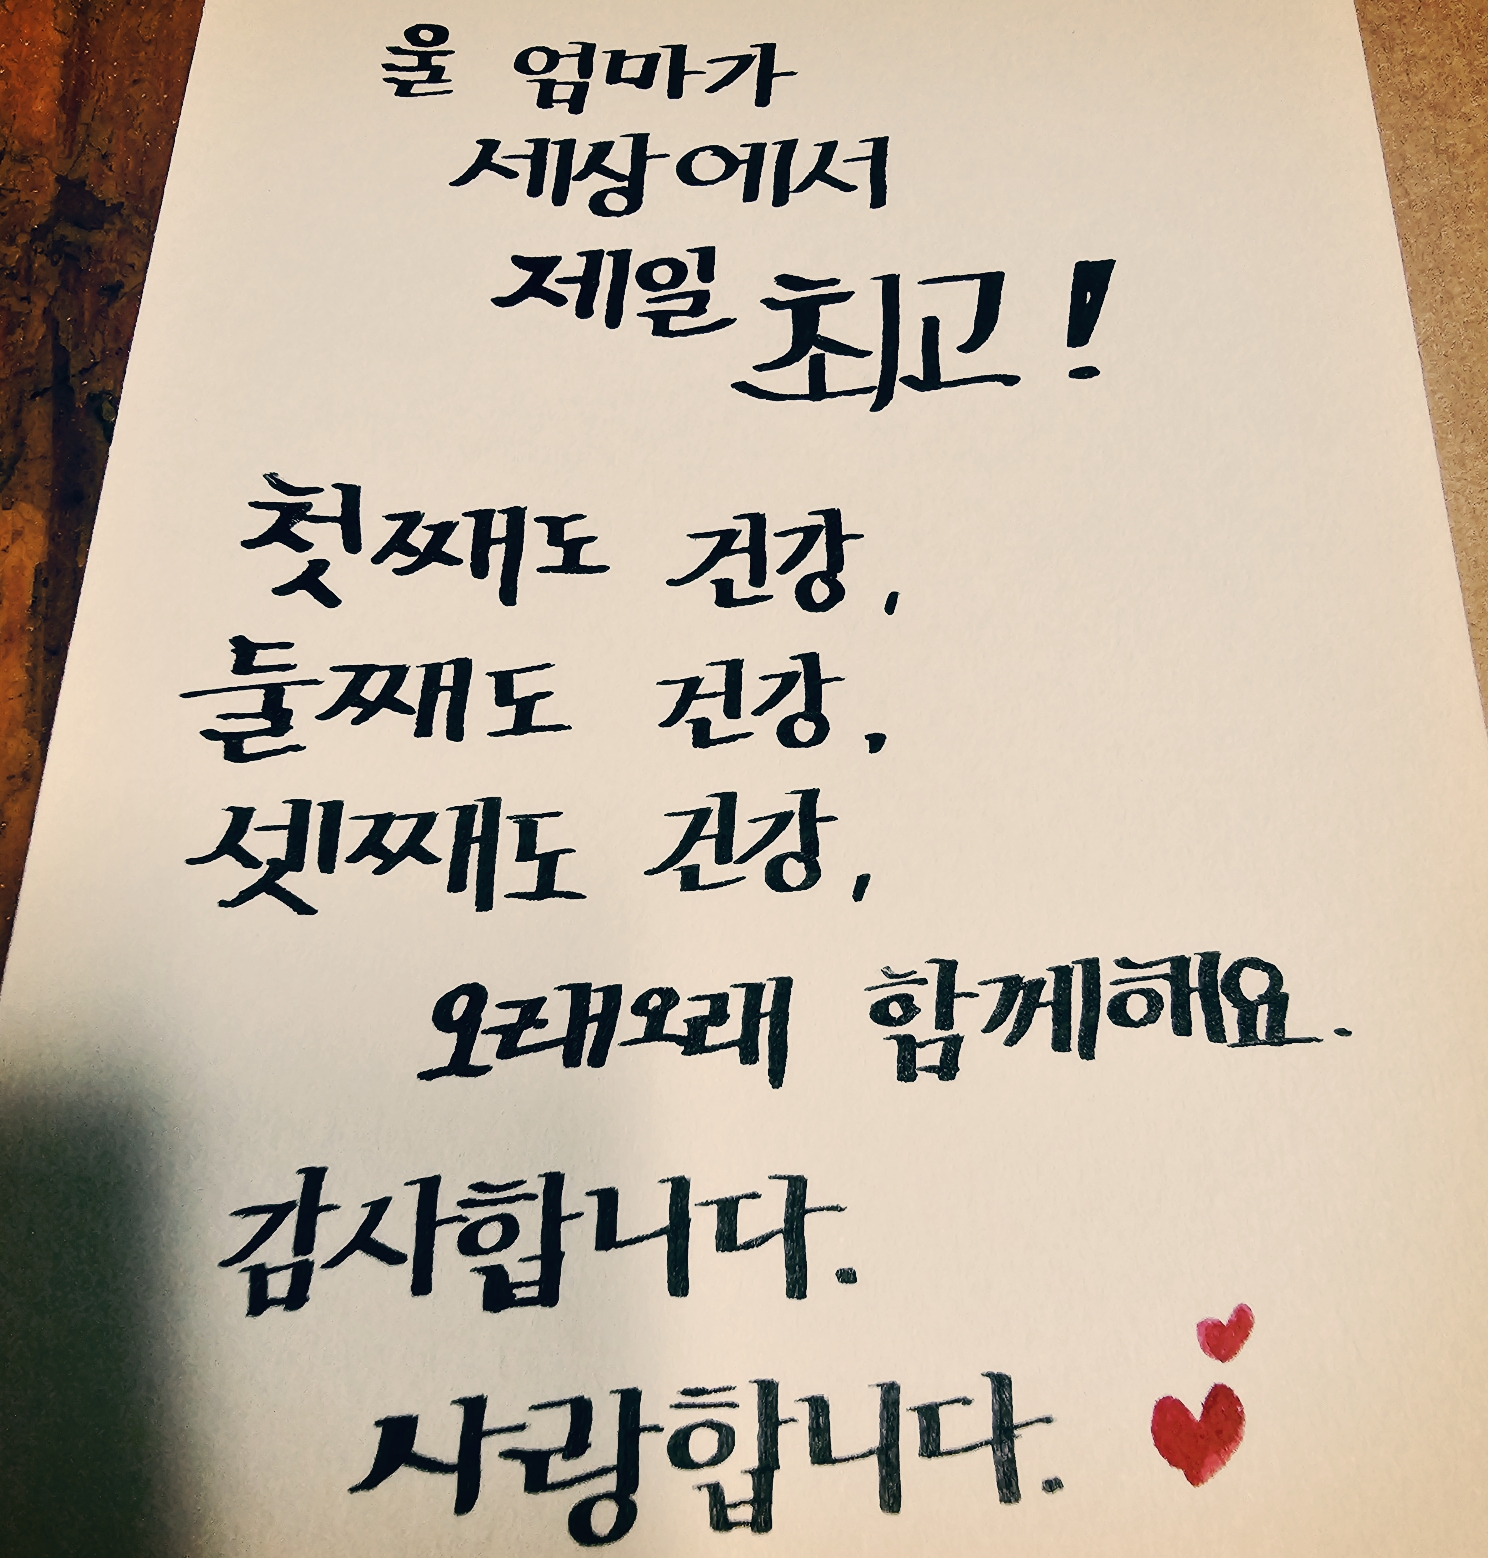 울 엄마가
세상에서
제일 최고!
첫째도 건강,
둘째도 건강,
셋째도 건강,
오래오래 함께해요.
감사합니다.
사랑합니다.